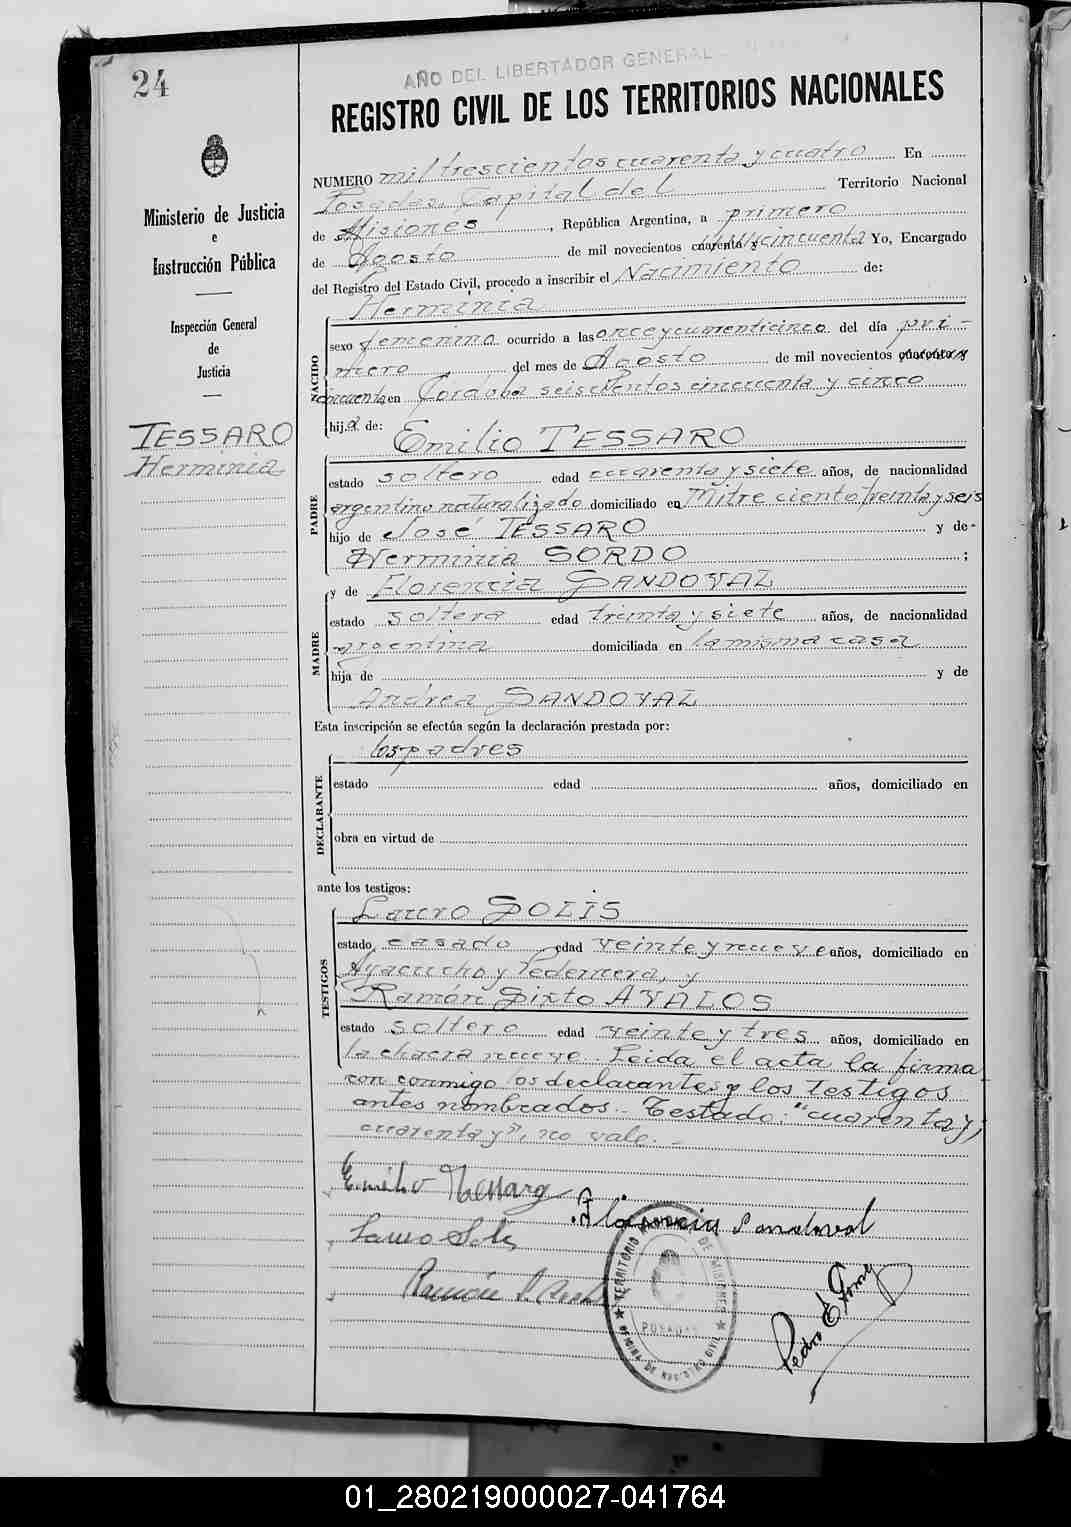 24
AÑO DEL LIBERTADOR GENERAL
REGISTRO CIVIL DE LOS TERRITORIOS NACIONALES
Ministerio de Justicia
e
Instrucción Pública
Inspección General
de
Justicia
TESSARO
Herminia
NUMERO mil trescientos cuarenta y cuatro En
Posadas, Capital del Territorio Nacional
de Misiones, República Argentina, a primero
de Agosto de mil novecientos cuarenta y cincuenta Yo, Encargado
del Registro del Estado Civil, procedo a inscribir el Nacimiento de:
NACIDO
Herminia
sexo femenino ocurrido a las once y cuarenticinco del día pri-
mero del mes de Agosto de mil novecientos cuarenta y
cincuenta en Córdoba seiscientos cincuenta y cinco
hija de: Emilio TESSARO
PADRE
estado soltero edad cuarenta y siete años, de nacionalidad
argentino naturalizado domiciliado en Mitre ciento treinta y seis
hijo de José TESSARO y de-
Herminia SORDO ;
MADRE
y de Florencia SANDOVAL
estado soltera edad treinta y siete años, de nacionalidad
argentina domiciliada en la misma casa
hija de y de
Andrea SANDOVAL
Esta inscripción se efectúa según la declaración prestada por:
los padres
DECLARANTE
estado edad años, domiciliado en
obra en virtud de
ante los testigos:
TESTIGOS
Lauro SOLIS
estado casado edad veinte y nueve años, domiciliado en
Ayacucho y Pedernera, y
Ramón Sixto AVALOS
estado soltero edad veinte y tres años, domiciliado en
la chacra nueve. Leida el acta la firma
con conmigo los declarantes y los testigos
antes nombrados.- Testado: "cuarenta y;
cuarenta y", no vale.-
Emilio Tessaro
Florencia Sandoval
Lauro Solis
Ramón S.
Pedro E.
TERRITORIO DE MISIONES
POSADAS
OFICINA DE REGISTRO CIVIL
01_280219000027-041764